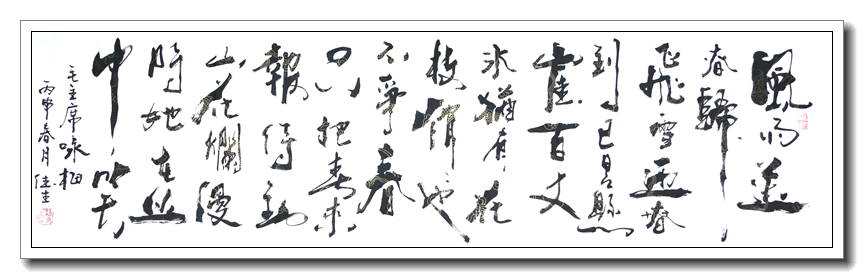 風雨送
春歸
飛雪迎春
到已是懸
崖百丈
冰猶有花
枝俏也
不爭春
只把春來
報待到
山花爛漫
時她在丛
中笑
毛主席咏梅
丙申春月佳生